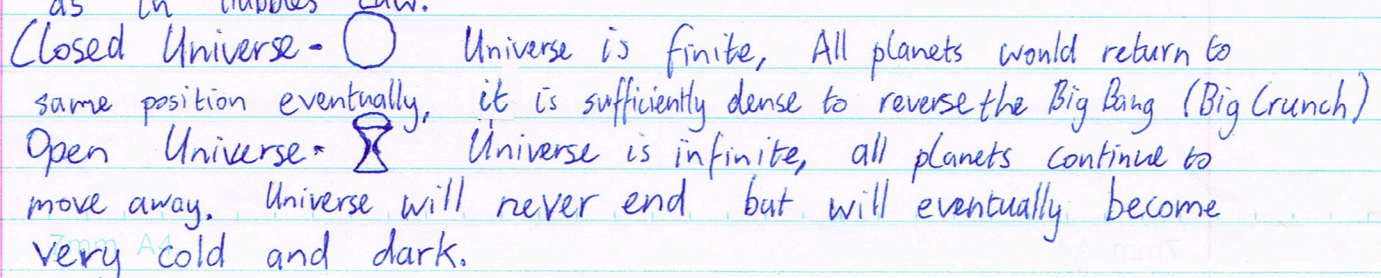 as in Hubbles Law.
Closed Universe - Universe is finite, All planets would return to
same position eventually, it is sufficiently dense to reverse the Big Bang (Big Crunch)
Open Universe - Universe is infinite, all planets continue to
move away. Universe will never end but will eventually become
very cold and dark.
7mm A4